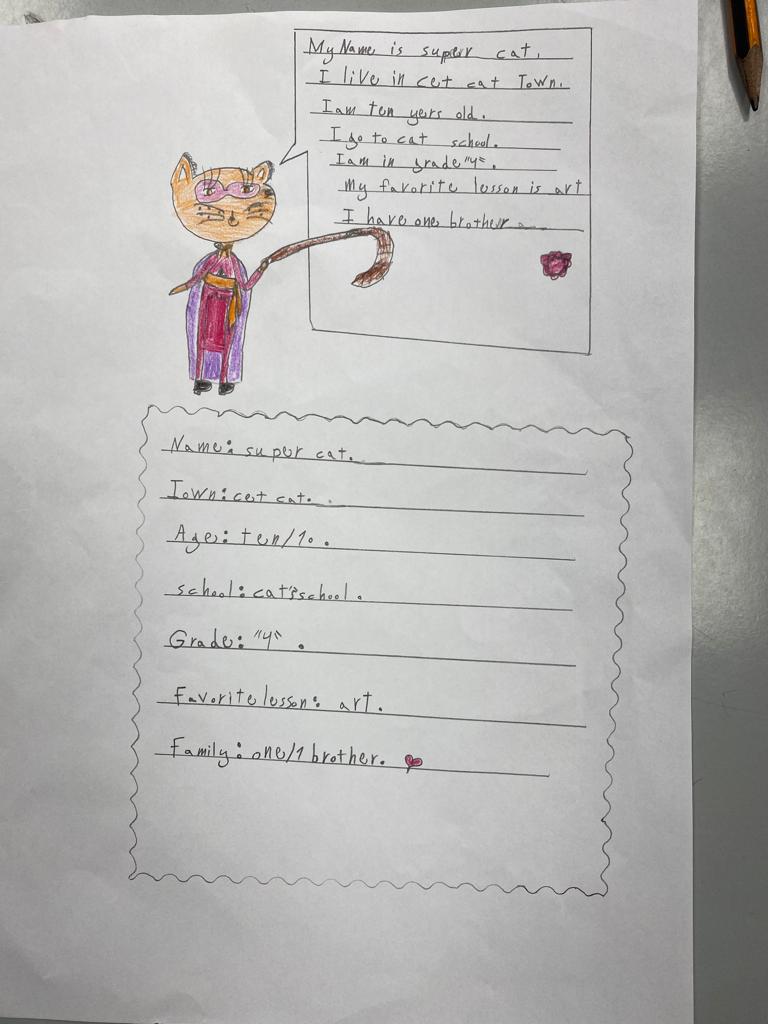 My Name is super cat.
I live in cet cat Town.
I am ten yers old.
I go to cat school.
I am in grade "4".
My favorite lesson is art
I have one brother
Name: super cat.
Town: cet cat.
Age: ten/10.
school: cat's school.
Grade: "4".
Favorite lesson: art.
Family: one/1 brother.